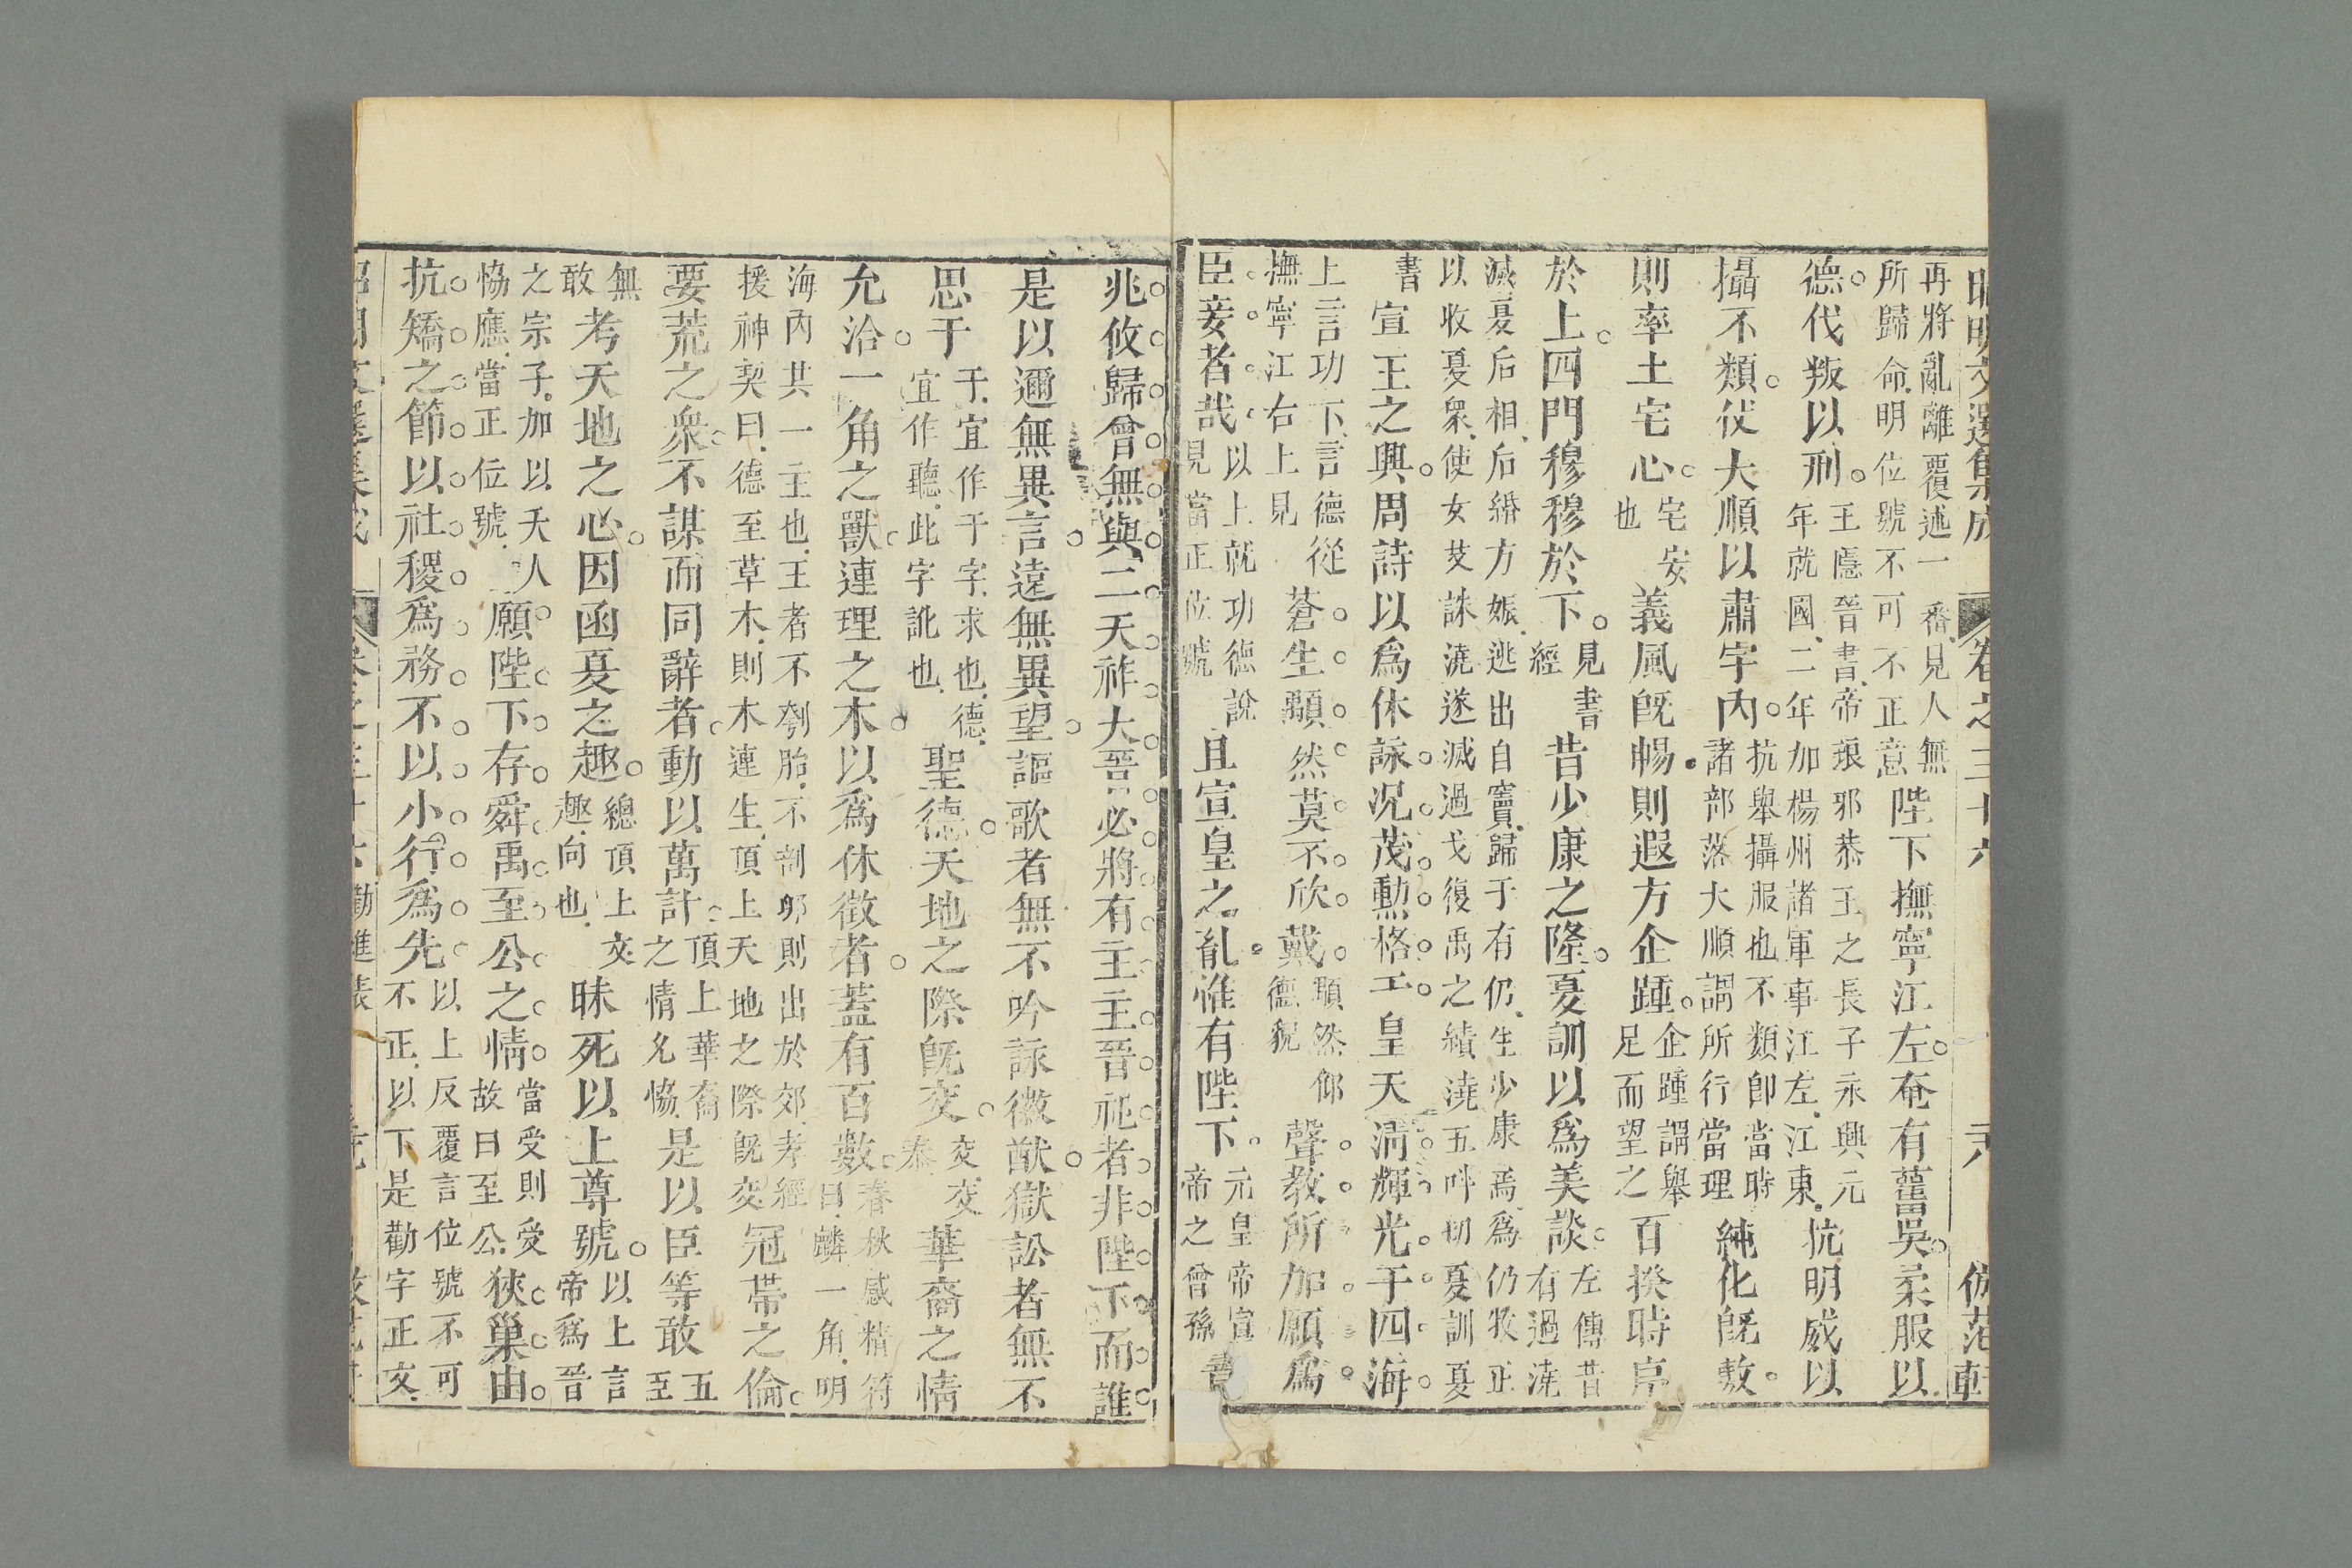 昭明文選集成 卷之三十六 倣范軒
再將亂離覆述一番見人無
所歸命明位號不可不正意
陛下撫寧江左奄有舊吳柔服以
德伐叛以刑
王隱晉書帝琅邪恭王之長子永興元
年就國二年加楊州諸軍事江左江東
抗明威以
攝不類仗大順以肅宇內
抗舉攝服也不類卽當時
諸部落大順謂所行當理
純化旣敷
則率土宅心
宅安
也
義風旣暢則遐方企踵
企踵謂舉
足而望之
百揆時序
於上四門穆穆於下
見書
經
昔少康之隆夏訓以爲美談
左傳昔
有過澆
滅夏后相后緡方娠逃出自竇歸于有仍生少康焉爲仍牧正
以收夏衆使女艾諜澆遂滅過戈復禹之績澆五叫切夏訓夏
書
宣王之興周詩以爲休詠況茂勲格于皇天淸輝光于四海
上言功下言德從
撫寧江右上見
蒼生顒然莫不欣戴
顒然仰
德貌
聲教所加願爲
臣妾者哉
以上就功德說
見當正位號
且宣皇之胤惟有陛下
元皇帝宣
帝之曾孫
億
兆攸歸曾無與二天祚大晉必將有主主晉祀者非陛下而誰
是以邇無異言遠無異望謳歌者無不吟詠徽猷獄訟者無不
思于
于宜作于字求也德
宜作聽此字訛也
聖德天地之際旣交
交交
泰
華裔之情
允洽一角之獸連理之木以爲休徵者蓋有百數
春秋感精符
曰麟一角明
海內共一主也王者不刳胎不剖卵則出於郊孝經
援神契曰德至草木則木連生頂上天地之際旣交
冠帶之倫
要荒之衆不謀而同辭者動以萬計
頂上華裔
之情允恊
是以臣等敢
五
至
無
敢
考天地之心因函夏之趣
總頂上文
趣向也
昧死以上尊號
以上言
帝爲晉
之宗子加以天人
恊應當正位號
願陛下存舜禹至公之情
當受則受
故曰至公
狹巢由
抗矯之節以社稷爲務不以小行爲先
以上反覆言位號不可
不正以下是勸字正文
勸進表